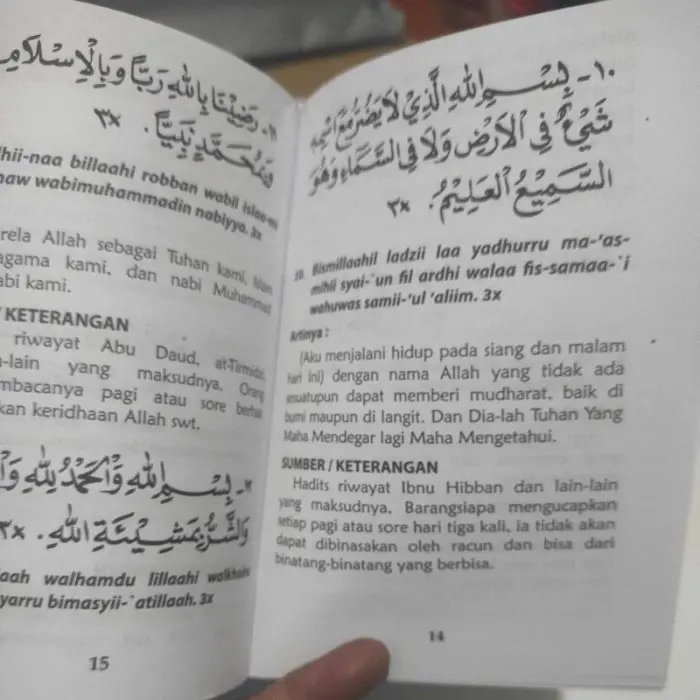 ١٠- بِسْمِ اللهِ الَّذِي لَا يَضُرُّ مَعَ اسْمِهِ
شَيْءٌ فِي الْاَرْضِ وَلَا فِي السَّمَاءِ وَهُوَ
السَّمِيْعُ الْعَلِيْمُ. ٣x
10. Bismillaahil ladzii laa yadhurru ma-'as-
mihii syai-`un fil ardhi walaa fis-samaa-`i
wahuwas samii-'ul 'aliim. 3x
Artinya :
(Aku menjalani hidup pada siang dan malam
hari ini) dengan nama Allah yang tidak ada
sesuatupun dapat memberi mudharat, baik di
bumi maupun di langit. Dan Dia-lah Tuhan Yang
Maha Mendegar lagi Maha Mengetahui.
SUMBER / KETERANGAN
Hadits riwayat Ibnu Hibban dan lain-lain
yang maksudnya, Barangsiapa mengucapkan
setiap pagi atau sore hari tiga kali, ia tidak akan
dapat dibinasakan oleh racun dan bisa dari
binatang-binatang yang berbisa.
14
رَضِيْنَا بِاللهِ رَبًّا وَبِالْاِسْلَامِ
نَبِيًّا. ٣x
hii-naa billaahi robban wabil islaa-mi
naw wabimuhammadin nabiyya. 3x
rela Allah sebagai Tuhan kami, Islam
agama kami, dan nabi Muhammad
abi kami.
/ KETERANGAN
riwayat Abu Daud, at-Tirmidzi,
n-lain yang maksudnya, Orang
mbacanya pagi atau sore berhak
kan keridhaan Allah swt.
بِسْمِ اللهِ وَالْحَمْدُ لِلّٰهِ
وَالشَّرُّ بِمَشِيْئَةِ اللهِ. ٣x
aah walhamdu lillaahi walkhairu
yarru bimasyii-`atillaah. 3x
15